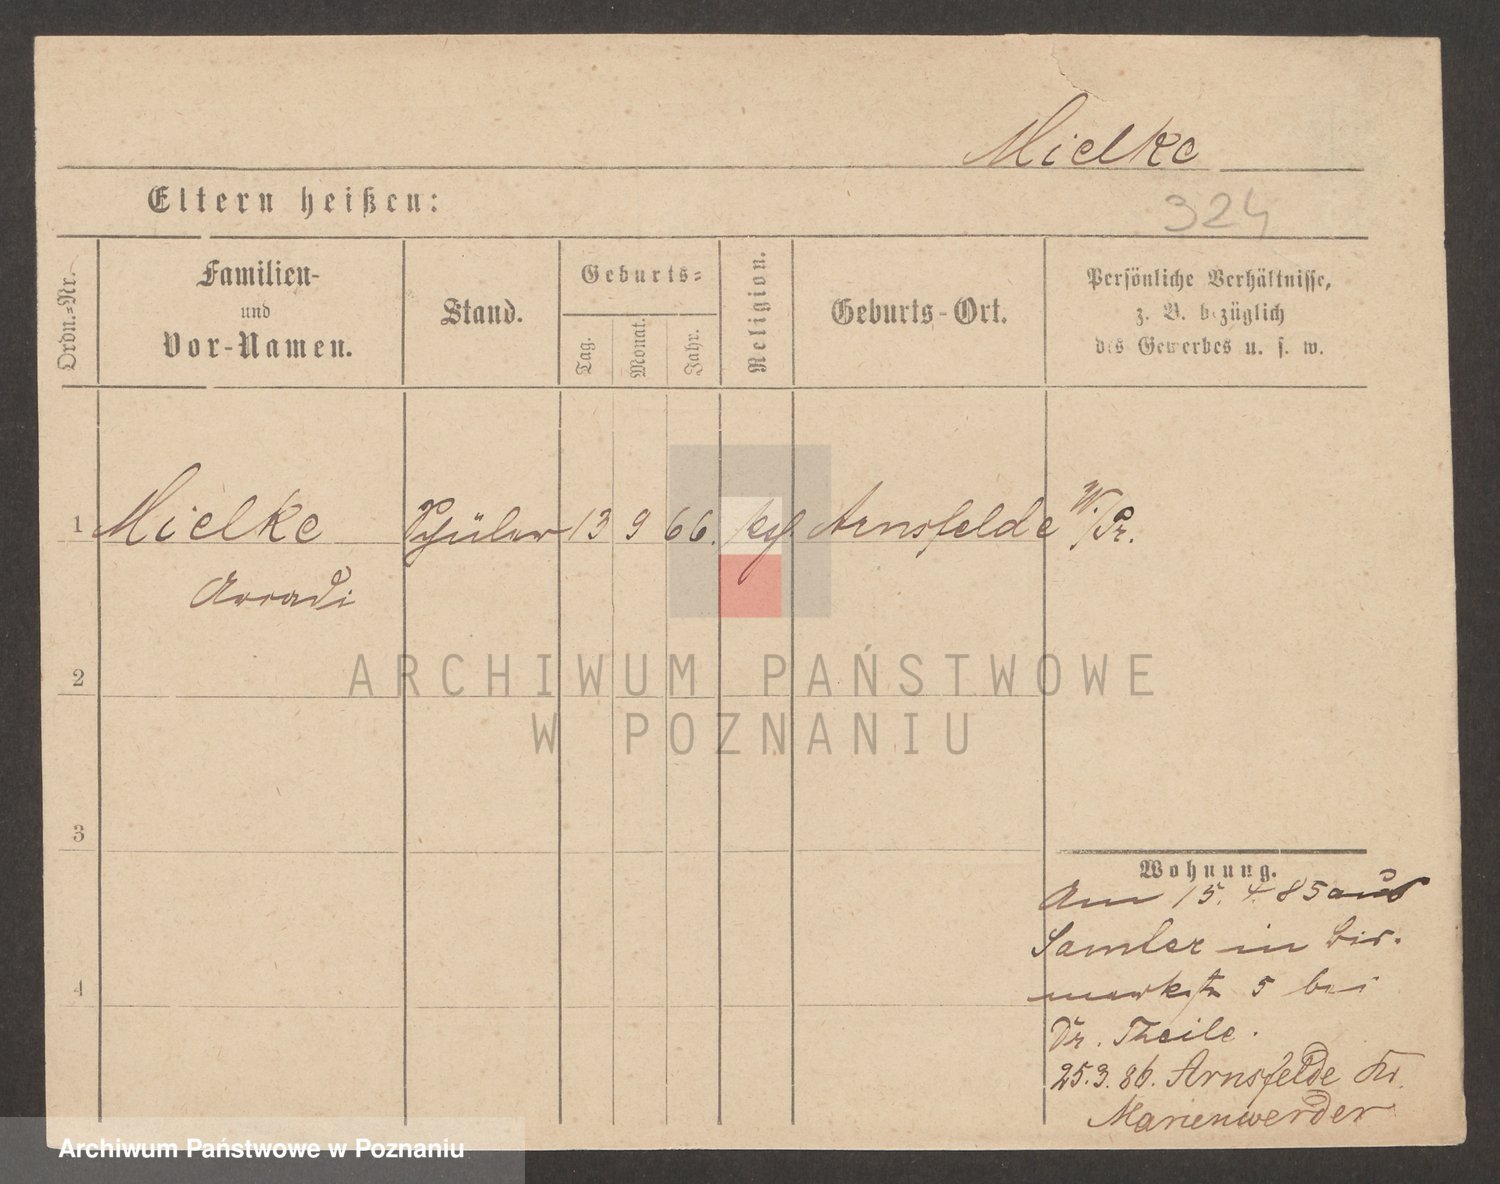 Mielke
Eltern heißen:
324
Ordn.-Nr.
Familien-
und
Vor-Namen.
Stand.
Geburts-
Tag.
Monat.
Jahr.
Religion.
Geburts-Ort.
Persönliche Verhältnisse,
z. B. bezüglich
des Gewerbes u. s. w.
1 Mielke Schüler 13 9 66. Arnsfelde W./Pr.
2
3
4
Wohnung.
Am 15. 4. 85 aus
Samter in
5 bei
Dr. Theile.
25.3.86. Arnsfelde Kr.
Marienwerder
ARCHIWUM PAŃSTWOWE
W POZNANIU
Archiwum Państwowe w Poznaniu